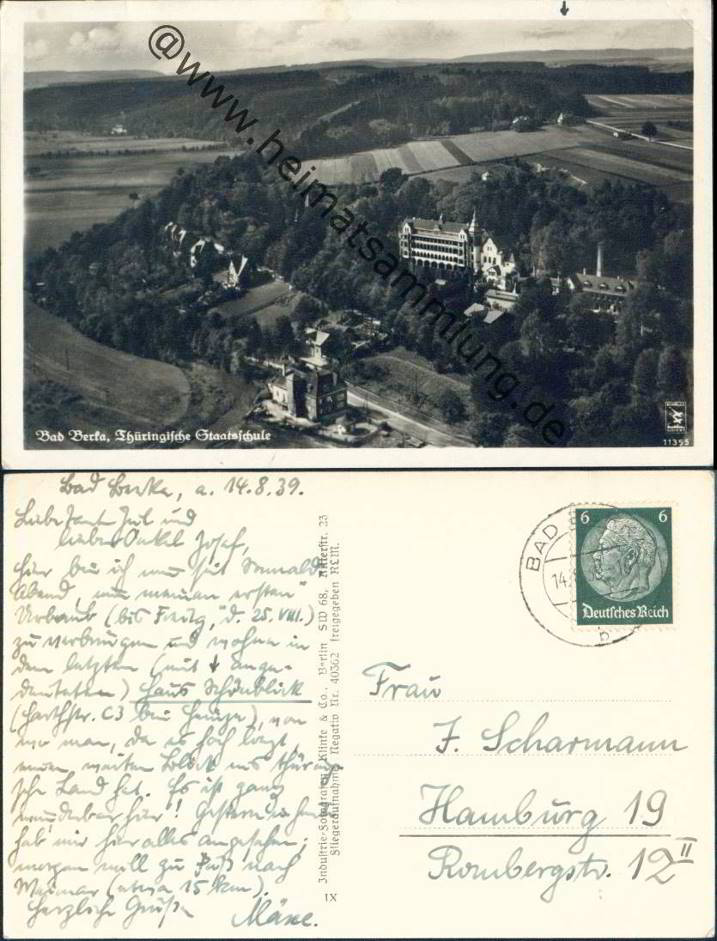 @www.heimatsammlung.de
Bad Berka, Thüringische Staatsschule
11355
Bad Berka, a. 14.8.39.
Liebe Tante Jul und
lieber Onkel Josef,
hier bin ich nun seit Sonnab.
Abend, um meinen ersten
Urlaub (bis Freitg, d. 25. VIII.)
zu verbringen und wohne in
dem letzten (mit ↓ ange-
deuteten) Haus Schönblick
(Harthstr. C3 bei Heinze), von
wo man, da es hoch liegt,
einen weiten Blick ins thürin-
sche Land hat. Es ist ganz
wunderbar hier! Gestern
hab mir hier alles angesehen;
morgen will zu Fuß nach
Weimar (etwa 15 km).
Herzliche Grüße
Industrie-Fotografen Klinke & Co., Berlin SW 68, Ritterstr. 23
Fliegeraufnahme Negativ Nr. 40362 freigegeben RLM.
IX
BAD
14.
b
6 6
Deutsches Reich
Frau
J. Scharmann
Hamburg 19
Rombergstr. 12 II